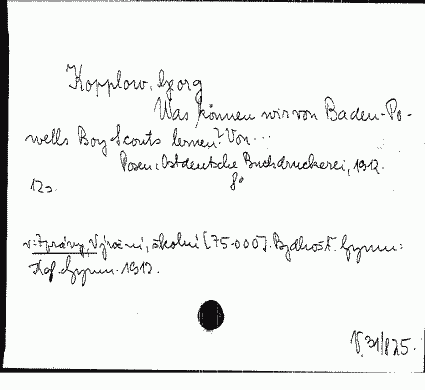 Kopplow, Georg
Was können wir von Baden-Po-
wells Boy Scouts lernen? Von...
Posen: Ostdeutsche Buchdruckerei, 1912.
12 s. 8°
v: Zprávy, Výroční, školní [75.000]. Bydhošť. Gymn:
Gymn. 1912.
V 31/825.